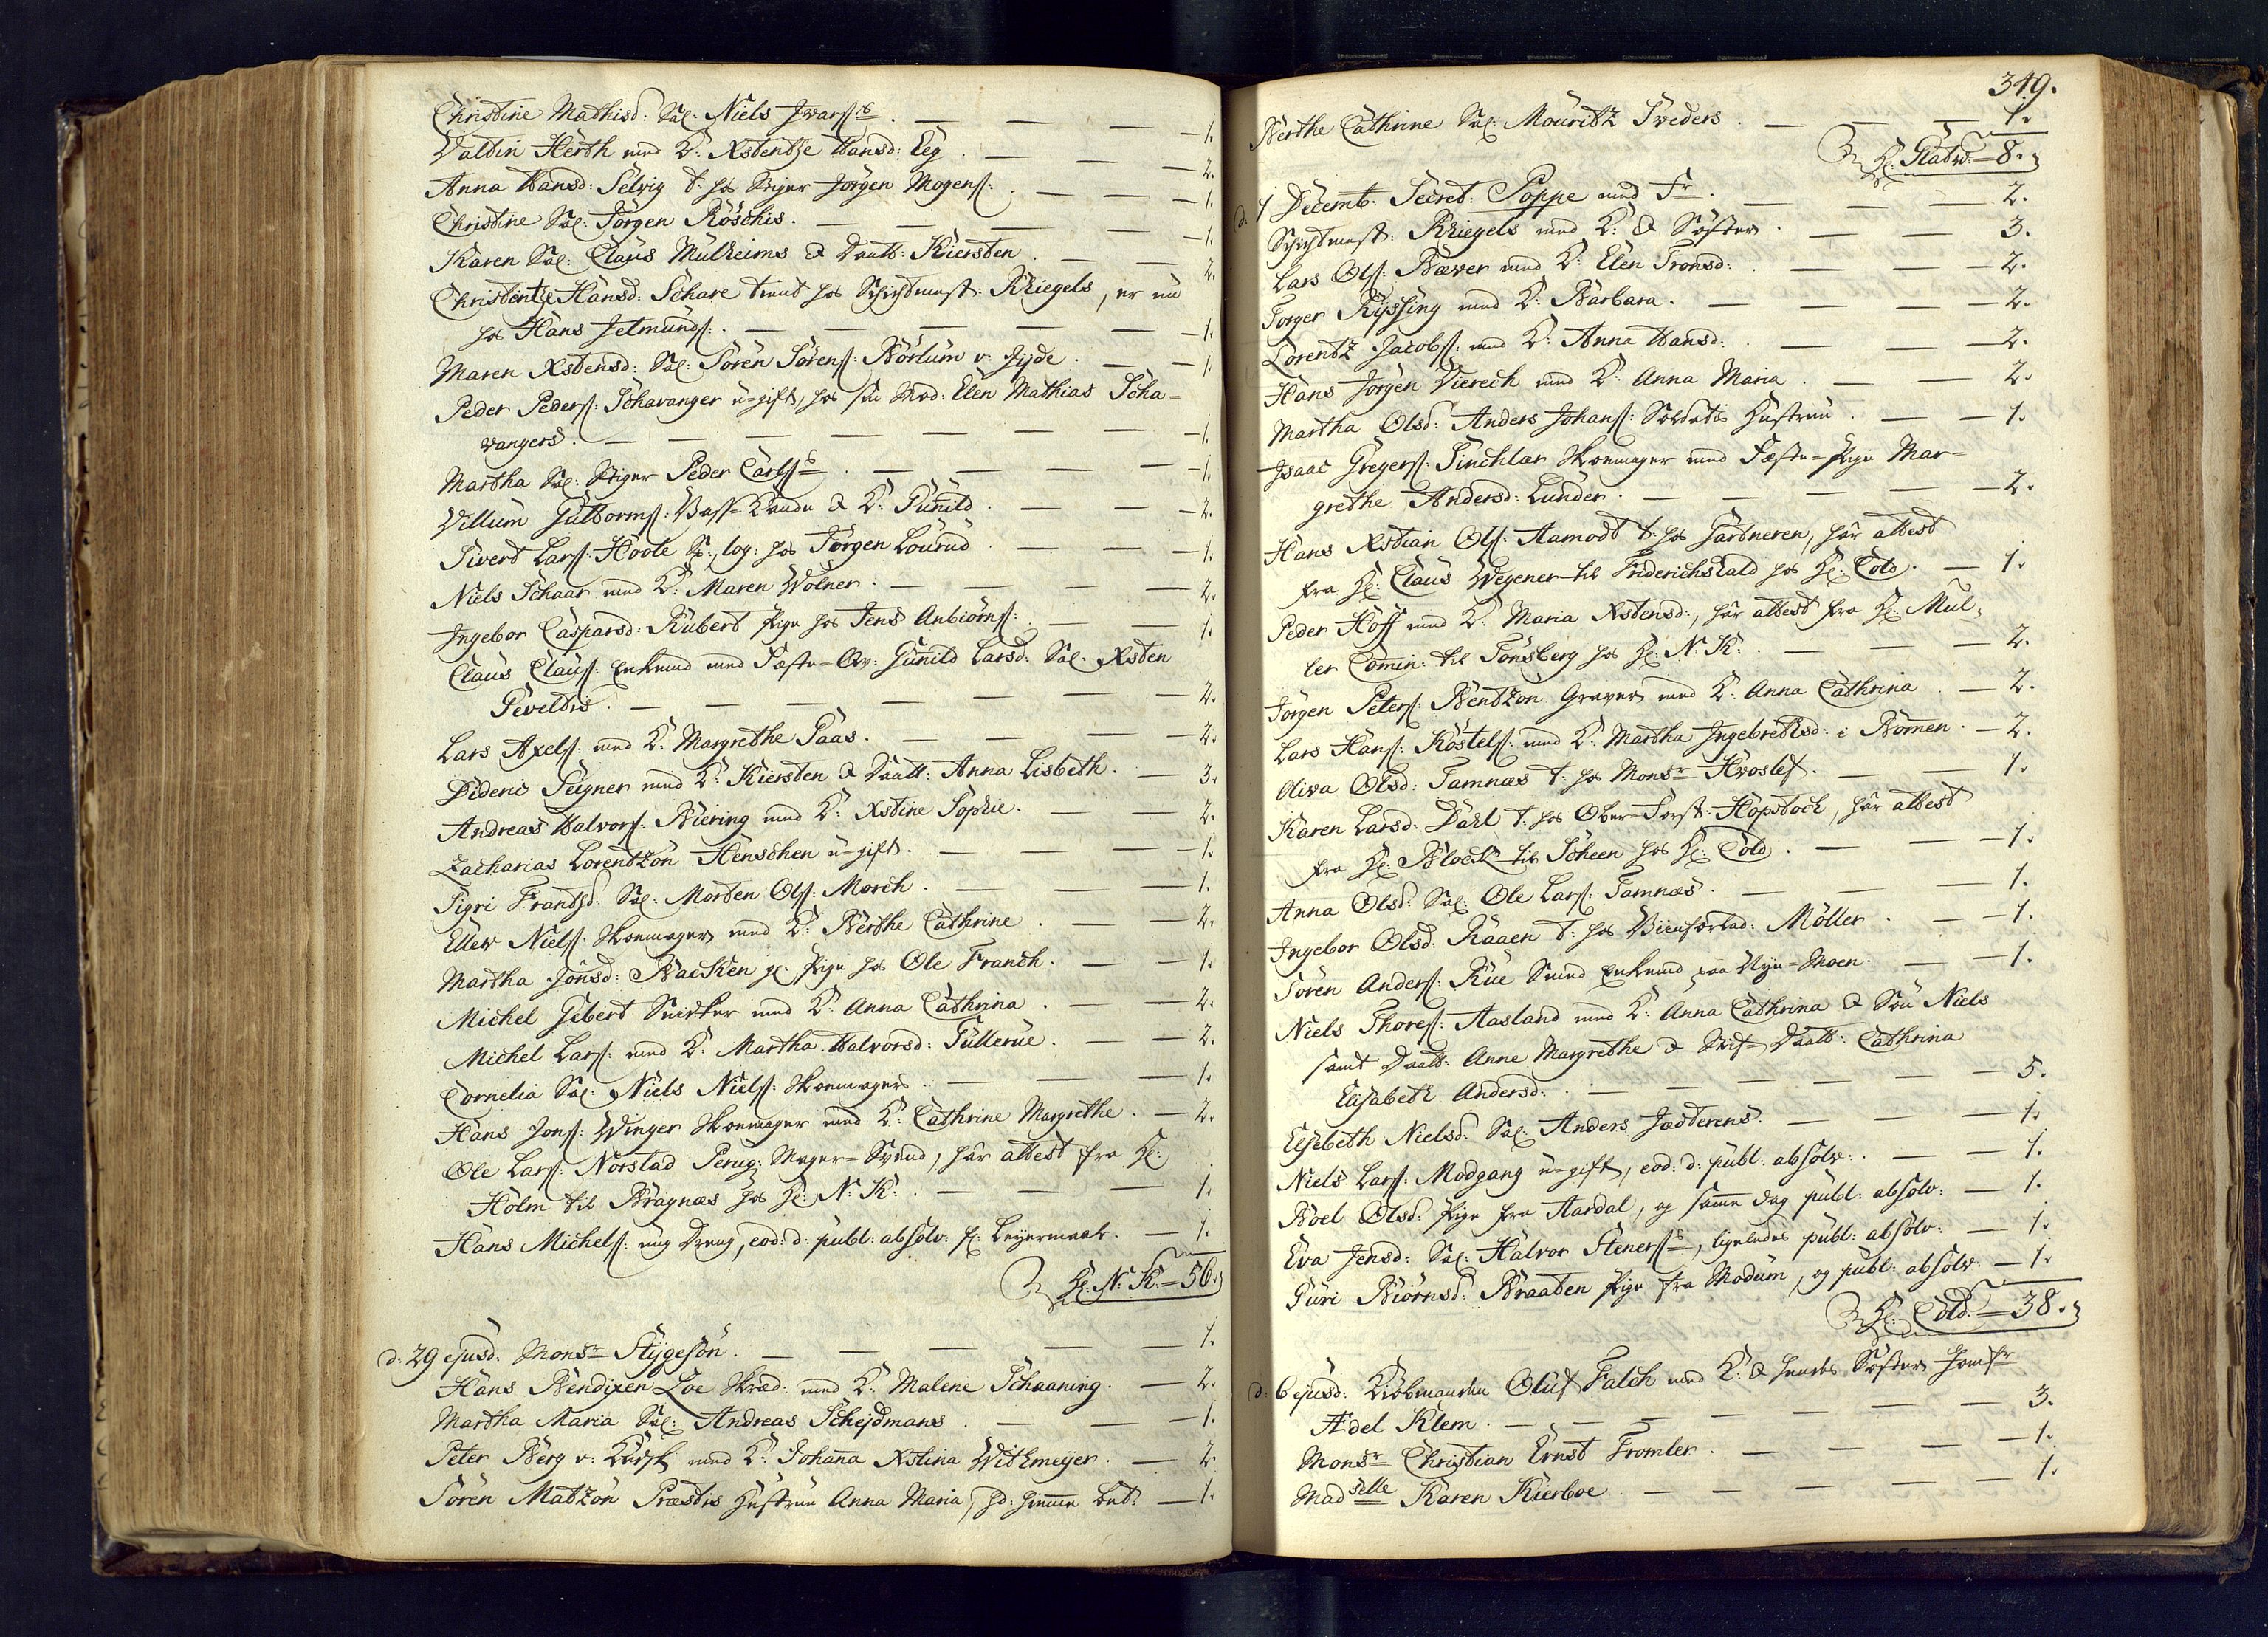 Christine Mathisd: Sal: Niels Iwarss — — — 1.
Valtin Herth med K: Xstentze Hansd: Eeg. — — 2.
Anna Hansd: Selvig t: hos Stiger Jörgen Mogens: — — 1.
Christine Sal: Jörgen Röschis. — — — 1.
Karen Sal: Claus Mülheims & Daatt: Kiersten — — 2.
Christentze Hansd: Schare tient hos Schichtmest: Kriegels, er nu
hos Hans Jelmunds: — — — — 1.
Maren Xstensd: Sal: Sören Sörens: Börlum v: Jyde. — — 1.
Peder Peders: Schavanger u-gift, hos sin Mod: Elen Mathias Scha-
vangers. — — — — — 1.
Martha Sal: Stiger Peder Carlss — — — 1.
Villum Gulborms: Vass- & K: Gunild. — — 2.
Sivert Lars: Hoole S:, log: hos Jörgen Lourud — — 1.
Niels Schaar med K: Maren Wolner. — — 2.
Ingebor Caspersd: Rubert Pige hos Jens Anbiörns: — — 1.
Claus Claus: Enkemd med Fæste-Qv: Gunild Larsd: Sal: Xsten
Geveltis. — — — — 2.
Lars Axels: med K: Margrethe Paas. — — 2.
Dideric Peigner med K: Kiersten & Daatt: Anna Lisbeth. — 3.
Andreas Halvors: Biering med K: Xstine Sophie. — — 2.
Zacharias Lorentzön Henschen u-gift. — — 1.
Sigri Frantzd: Sal: Morten Ols: Morch. — — 1.
Ellew Niels: Skoemager med K: Berthe Cathrine — — 2.
Martha Jönsd: Backen gl: Pige hos Ole Franck. — — 1.
Michel Gebert Snidker med K: Anna Cathrina — — 2.
Michel Lars: med K: Martha Halvorsd: Gullerüe. — — 2.
Cornelia Sal: Niels Niels: Skoemagers. — — 1.
Hans Jons: Winger Skoemager med K: Cathrine Margrethe. — 2.
Ole Lars: Norstad Perug: Mager-Svend, har attest fra H:
Holm til Bragnæs hos H: N: K: — — — 1.
Hans Michels: ung Dreng, eod: d: publ: absolv: f: Leyermaal. — 1.
H: N: K: = 56.
d: 29 ejusd: Monsr Stygesön. — — — 1.
Hans Bendixen Loe Skræd: med K: Malene Schaaning. — 2.
Martha Maria Sal: Andreas Scheidmans. — — 1.
Peter Berg v: Kirk med K: Johanna Xstina Withmeyer. — 2.
Sören Matzön Præstis Hustrue Anna Maria, hd: hiemme bet: — 1.
349.
Berthe Cathrine Sal: Mouritz Sveders. — — 1.
H: = 8.
d: 1 Decemb: Secret: Poppe med Fr. — — 2.
Schichtmest: Kriegels med K: & Söster. — — 3.
Lars Ols: Bæver med K: Elen Tronsd: — — 2.
Torger Ryssing med K: Barbara. — — 2.
Lorentz Jacobs: med K: Anna Hansd: — — 2.
Hans Jörgen Viereck med K: Anna Maria. — — 2.
Martha Olsd: Anders Johans: Soldatis Hustrue. — — 1.
Isaac Gregers: Sinchlar Skoemager med Fæste-Pige Mar-
grethe Andersd: Lunder. — — — 2.
Hans Xstian Ols: Aamodt t: hos Gartneren, har attest
fra H: Claus Wegener til Friderichshald hos H: Cold. — 1.
Peder Hoff med K: Maria Xstensd:, har attest fra H: Mul-
ler Comin: til Tönsberg hos H: N: K: — — 2.
Jörgen Peters: Bentzon Graver med K: Anna Cathrina. — 2.
Lars Hans: Köstels: med K: Martha Ingebretsd: i Bommen. — 2.
Oliva Olsd: Tamnæs t: hos Monsr Hvoslef. — — 1.
Karen Larsd: Dahl t: hos Ober-Forst: Hopstock, har attest
fra H: Block til Scheen hos H: Cold. — — 1.
Anna Olsd: Sal: Ole Lars: Tamnæs. — — 1.
Ingebor Olsd: Raaen t: hos Möller. — — 1.
Sören Anders: Rüe Smed Enkemd paa Nye-Moen. — — 1.
Niels Thores: Aasland med K: Anna Cathrina & Sön Niels
samt Daatt: Anne Margrethe & Stif-Daatt: Cathrina
Elisabeth Andersd: — — — — 5.
Elsebeth Nielsd: Sal: Anders Jædterens. — — 1.
Niels Lars: Modgang u-gift, eod: d: publ: absolv: — — 1.
Boel Olsd: Pige fra Aardal, og samme dag publ: absolv: — 1.
Eva Jensd: Sal: Halvor Stenerss, ligeledes publ: absolv: — 1.
Guri Biörnsd: Braaten Pige fra Modum, og publ: absolv: — 1.
H: Cold. = 38.
d: 6 ejusd: Kiöbmanden Oluf Falch med K: & hendes Söster Jomfr
Adel Klem. — — — 3.
Monsr Christian Ernst Fromler. — — 1.
Madselle Karen Kierboe. — — — 1.